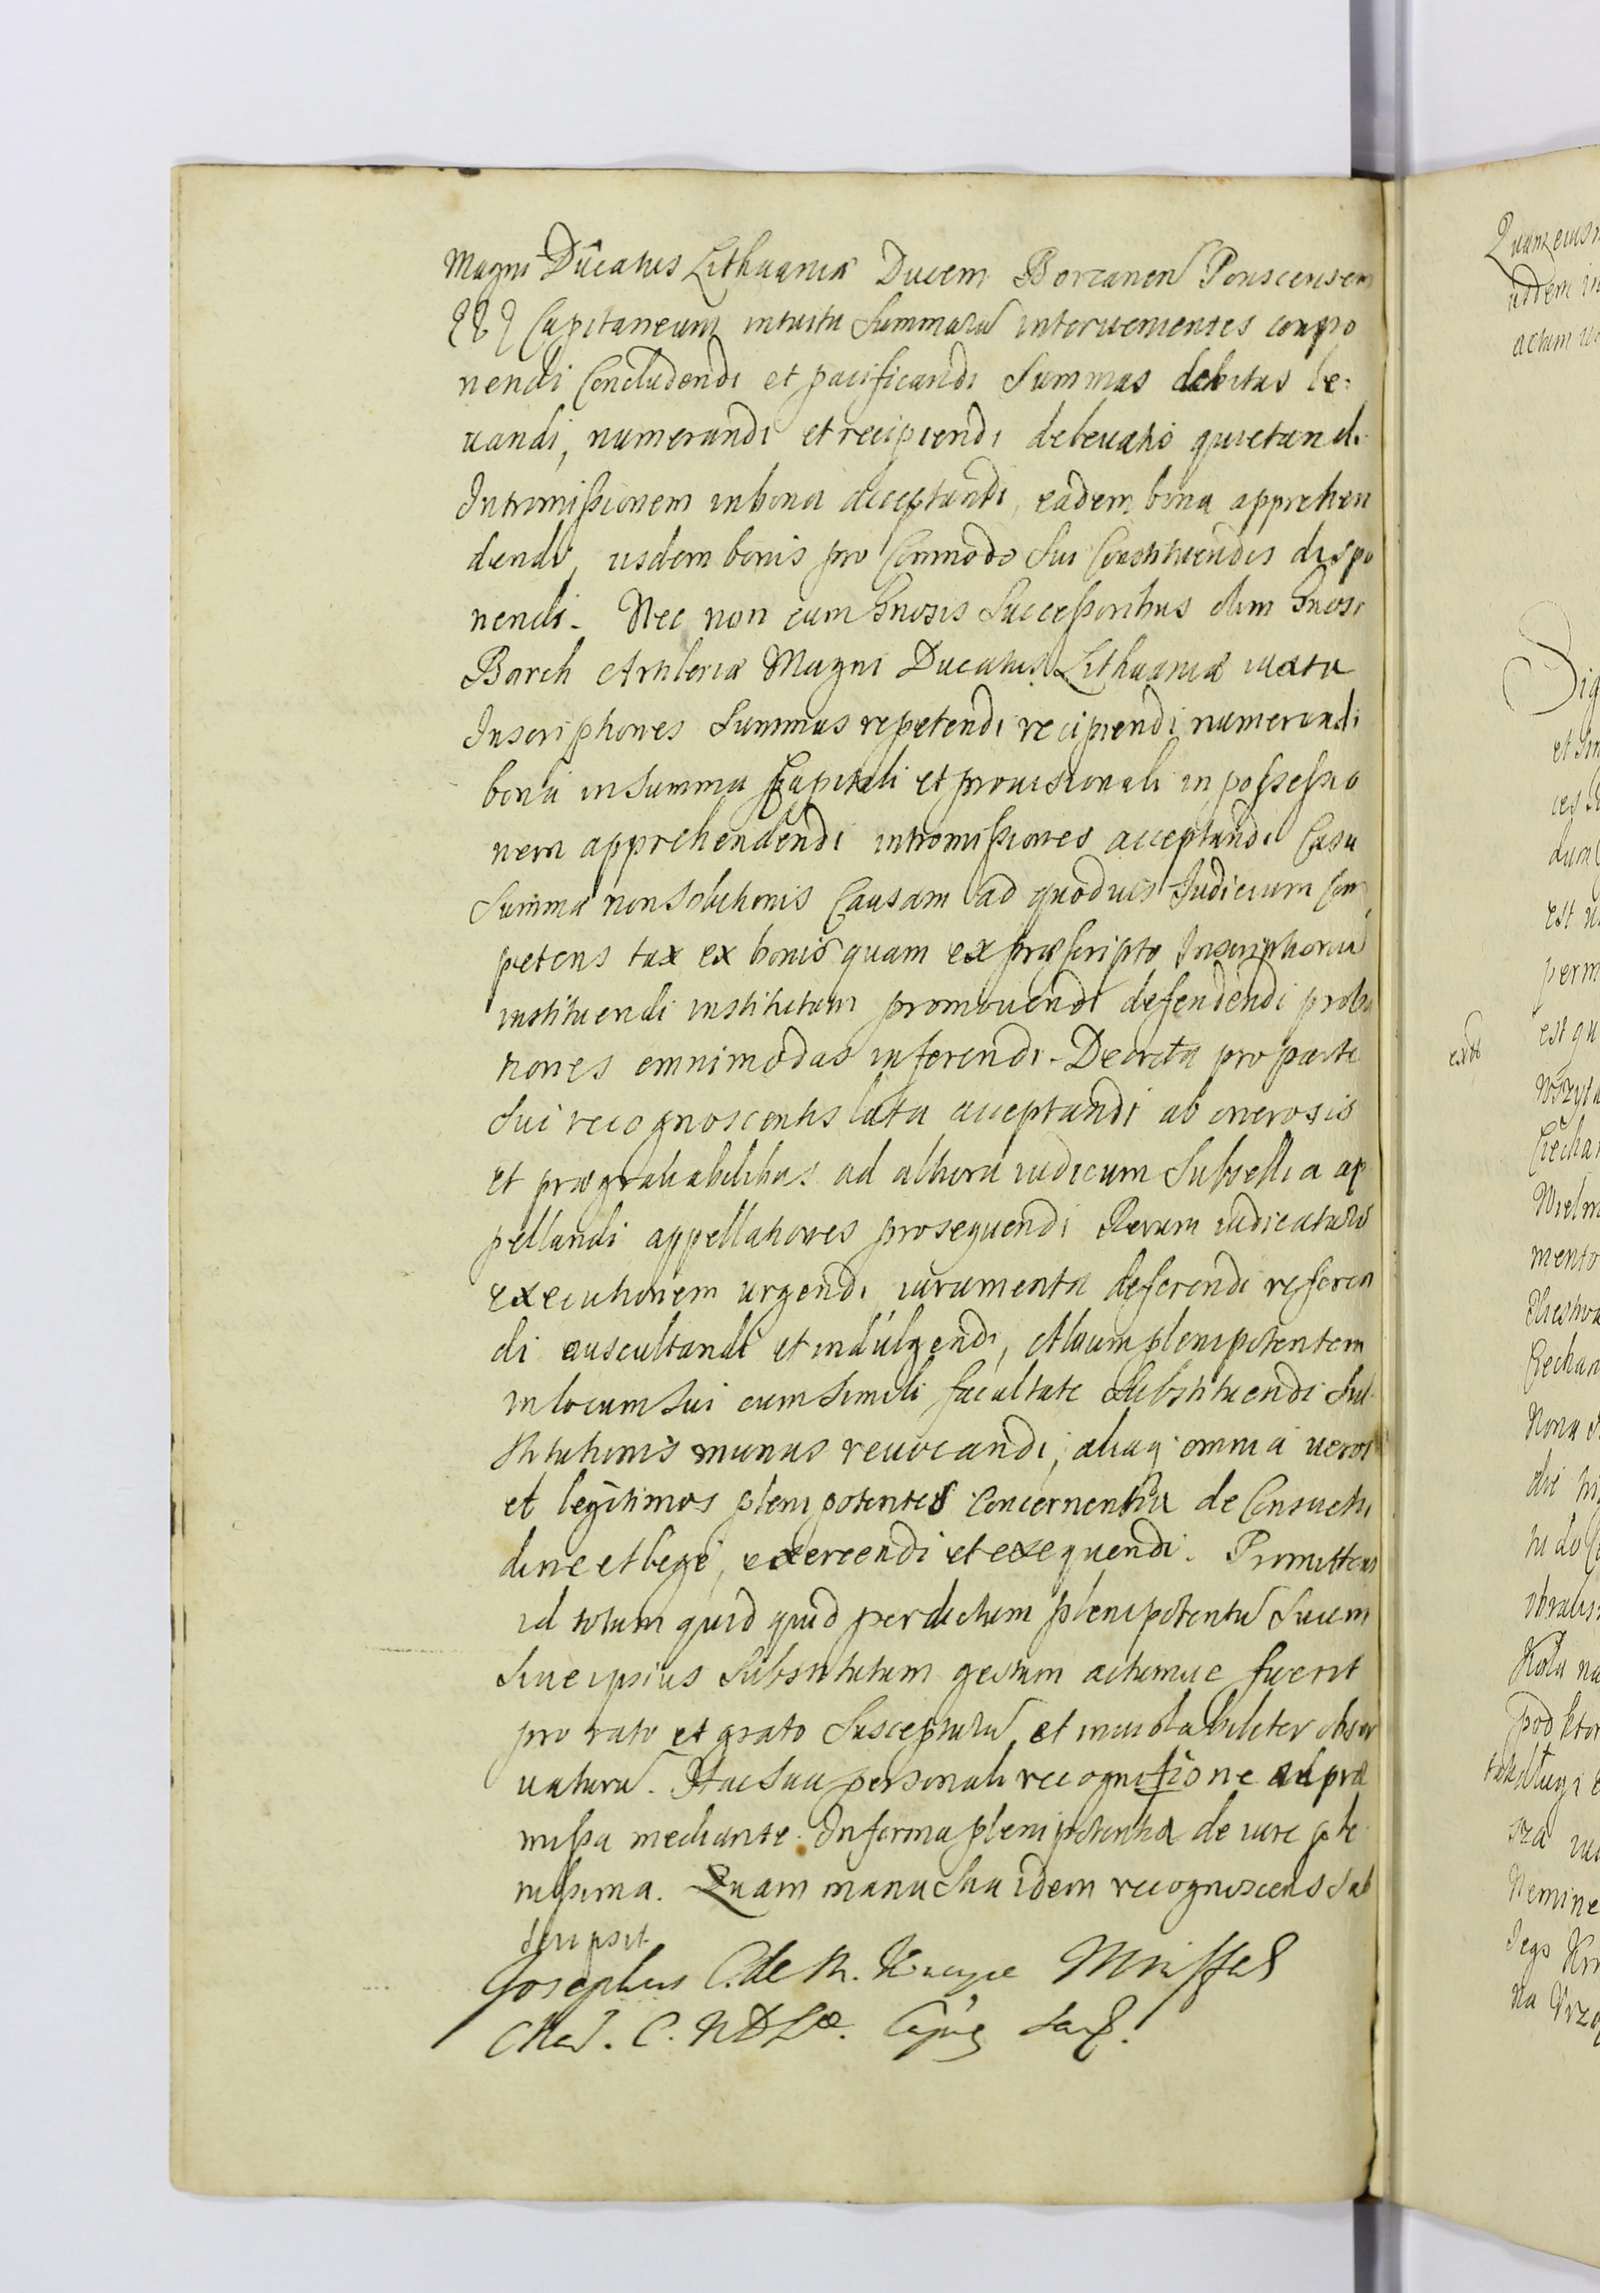 Magni Ducatus Lithuaniæ Ducem Borzanen Ponscensem
Capitaneum intuitu Summaru intervenientes compo
nendi Concludendi et pacificandi Summas debitas le:
uandi, numerandi et recipiendi de levatis quietandi
Intromissionem in bona acceptandi, eadem bona apprehen
dendi, iisdem bonis pro Commodo Sui Constituendis dispo
nendi. Nec non cum Gnosis Successoribus olim Gnosi
Borch Artileriæ Magni Ducatus Lithuaniæ iuxta
Inscriptiones Summas repetendi recipiendi numerandi
bona in Summa Capitali et provisionali in possessio
nem apprehendendi intromissiones acceptandi Casu
Summæ non Solutionis Causam ad quoduis Judicium Com
petens tax ex bonis quam ex præscripto Inscriptionu
instituendi institutam promouendi defendendi proba
tiones omnimodas inferendi. Decreta pro parte
Sui recognoscentis lata acceptandi ab onerosis
et prægrauabilibus ad altiora iudicum Subsellia ap
pellandi appellationes prosequendi Rerum iudicataru
executionem urgendi, iuramenta deferendi referen
di auscultandi et indulgendi, Alium plenipotentem
in locum Sui cum Simili facultate Substituendi Sub
stitutionis munus reuocandi, aliaq omnia ueros
et legitimos plenipotentes Concernentia de Consuetu
dine et lege, exercendi et exequendi. Promittens
id totum quid quid per dictum plenipotentu Suum
Siue ipsius Substitutum gestum actumue fuerit
pro rato et grato Suscepturu et inuiolabiliter obser
uaturu. Hac Sua personali recognitione ad præ
missa mediante. In forma plenipotentiæ de iure ple
nissima. Quam manu Sua idem recognoscens Sub
scripsit
Josephus C. de M. Mniszech
C. Capus
Quam eius
uddem in
actum
Dig
et Im
dum
est
perm
est qu
extt
Wielm
mento
Ciechan
Nona
die
Kola na
pod ktor
sza
Nemine
Jego
na Wrzą